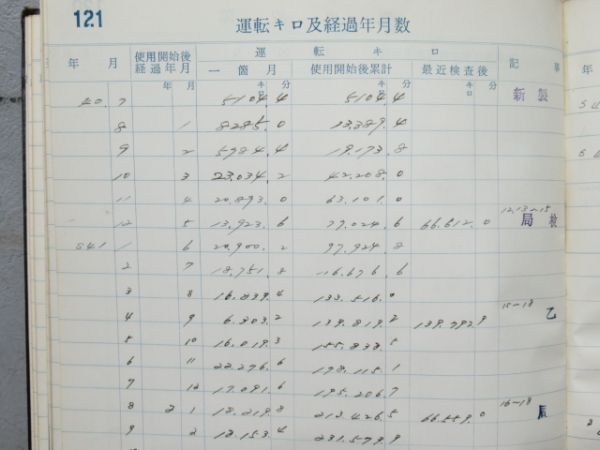 121
運転キロ及経過年月数
年 月 使用開始後経過年月 運転キロ 記事
一箇月 使用開始後累計 最近検査後
年 月 キロ 分 キロ 分 キロ 分
40. 7 5104.4 5104.4 新製
8 1 8285.0 13.389.4
9 2 5984.4 19.173.8
10 3 23.034.2 42.208.0
11 4 20.893.0 63.101.0
12 5 13.923.6 77.024.6 66.612.0 12.13-15 局検
S41 1 6 20.900.2 97.924.8
2 7 18.751.8 116.676.6
3 8 16.839.4 133.516.0
4 9 6.303.2 139.819.2 139.792.9 15-18 乙
5 10 16.019.3 155.838.5
6 11 22.276.6 178.115.1
7 12 17.091.6 195.206.7
8 2 1 18.219.8 213.426.5 66.559.0 16-18
9 2 18.153.4 231.579.9